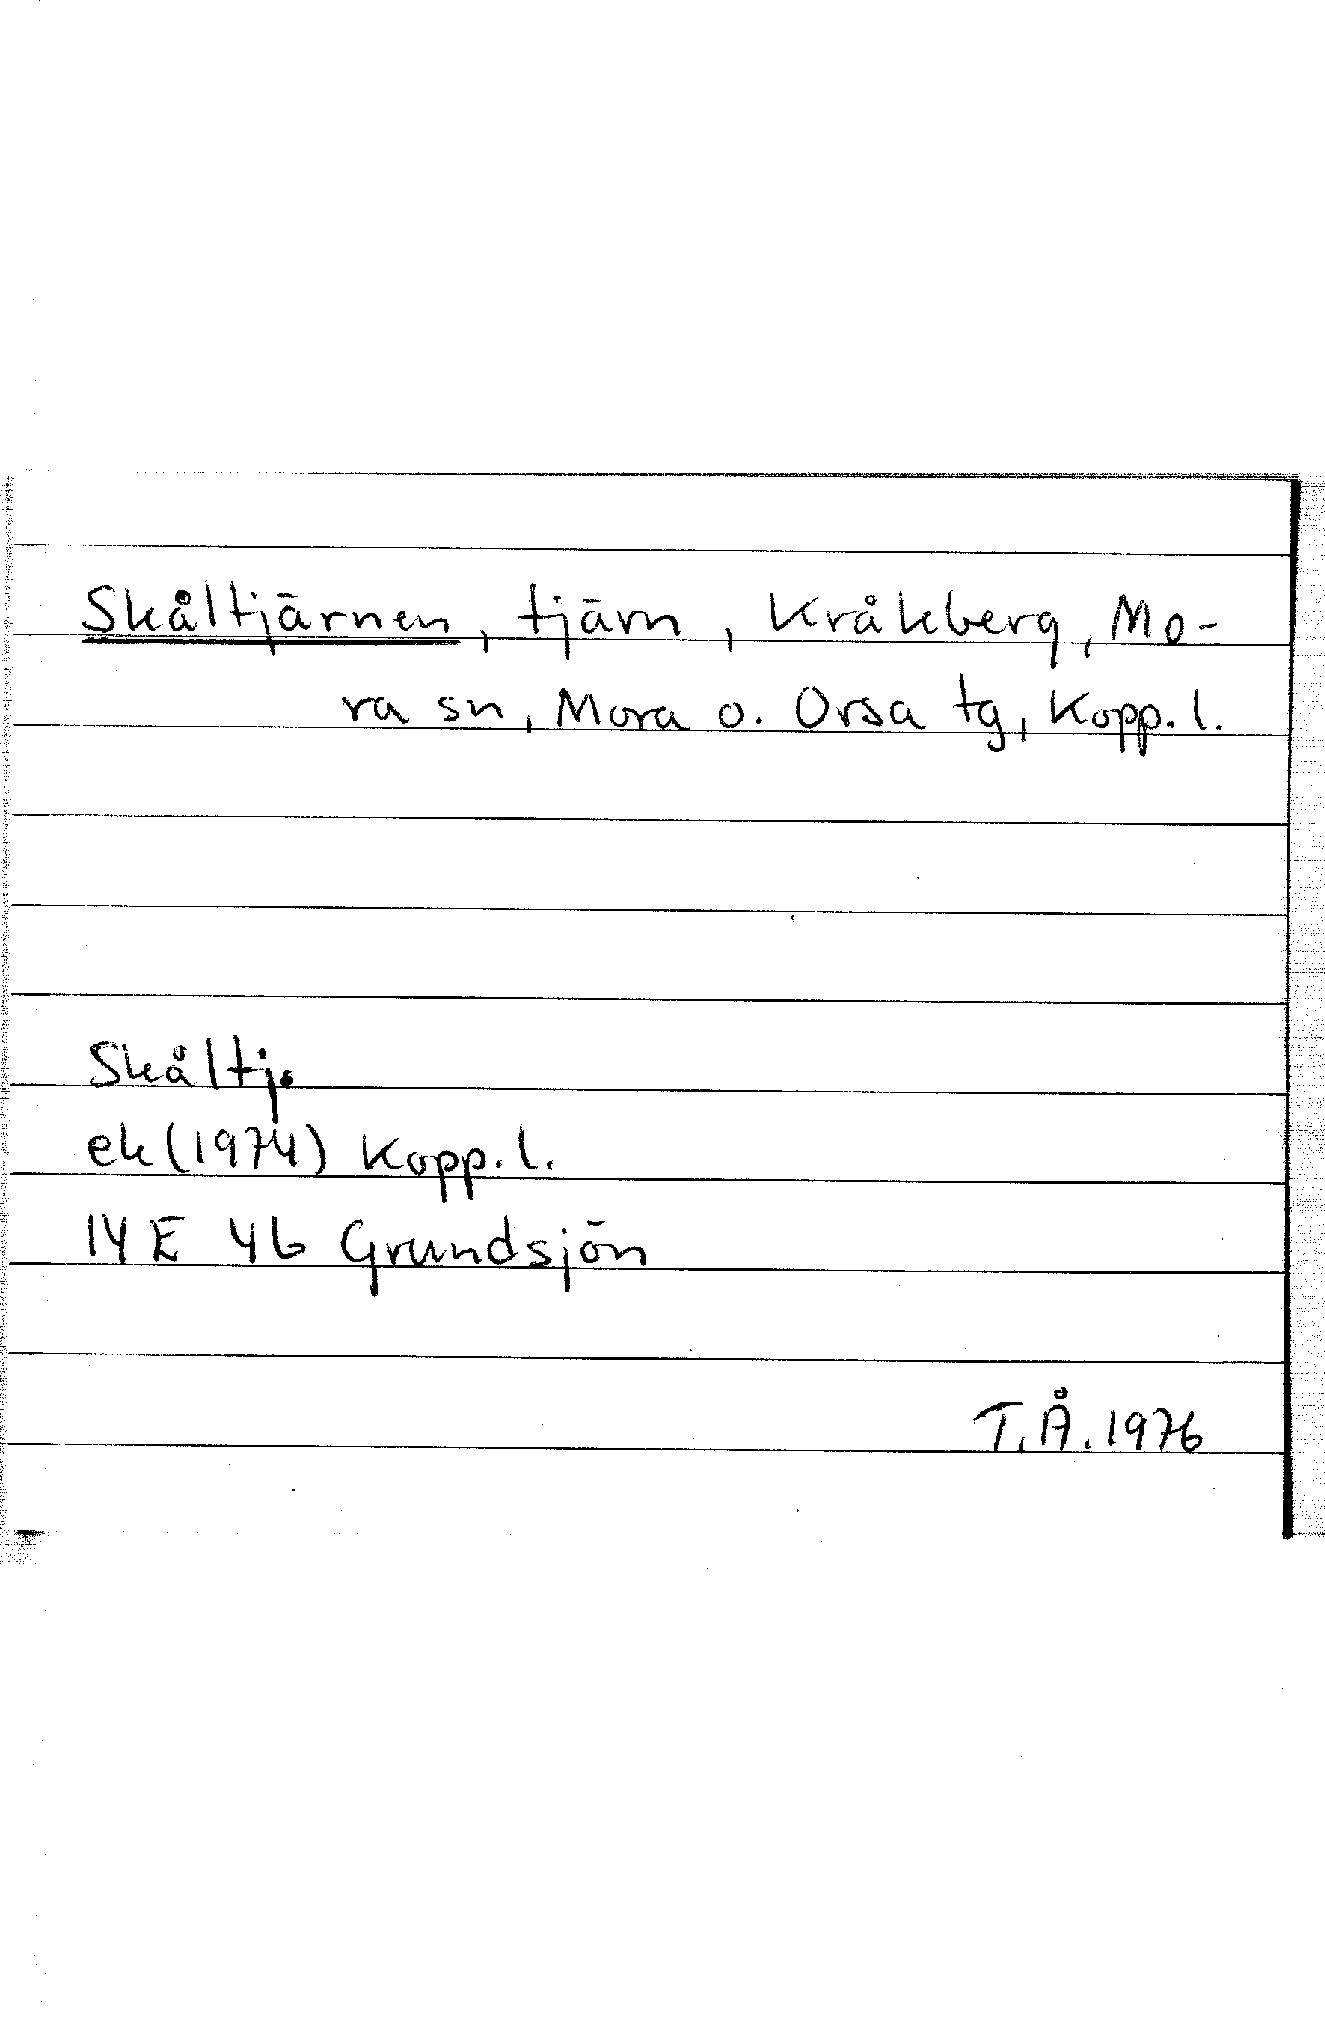 Skåltjärnen, tjärn, Kråkberg, Mo-
ra sn, Mora o. Orsa tg, Kopp. l.
Skåltj.
ek (1974) Kopp. l.
14 E 4b Grundsjön
T.Å. 1976